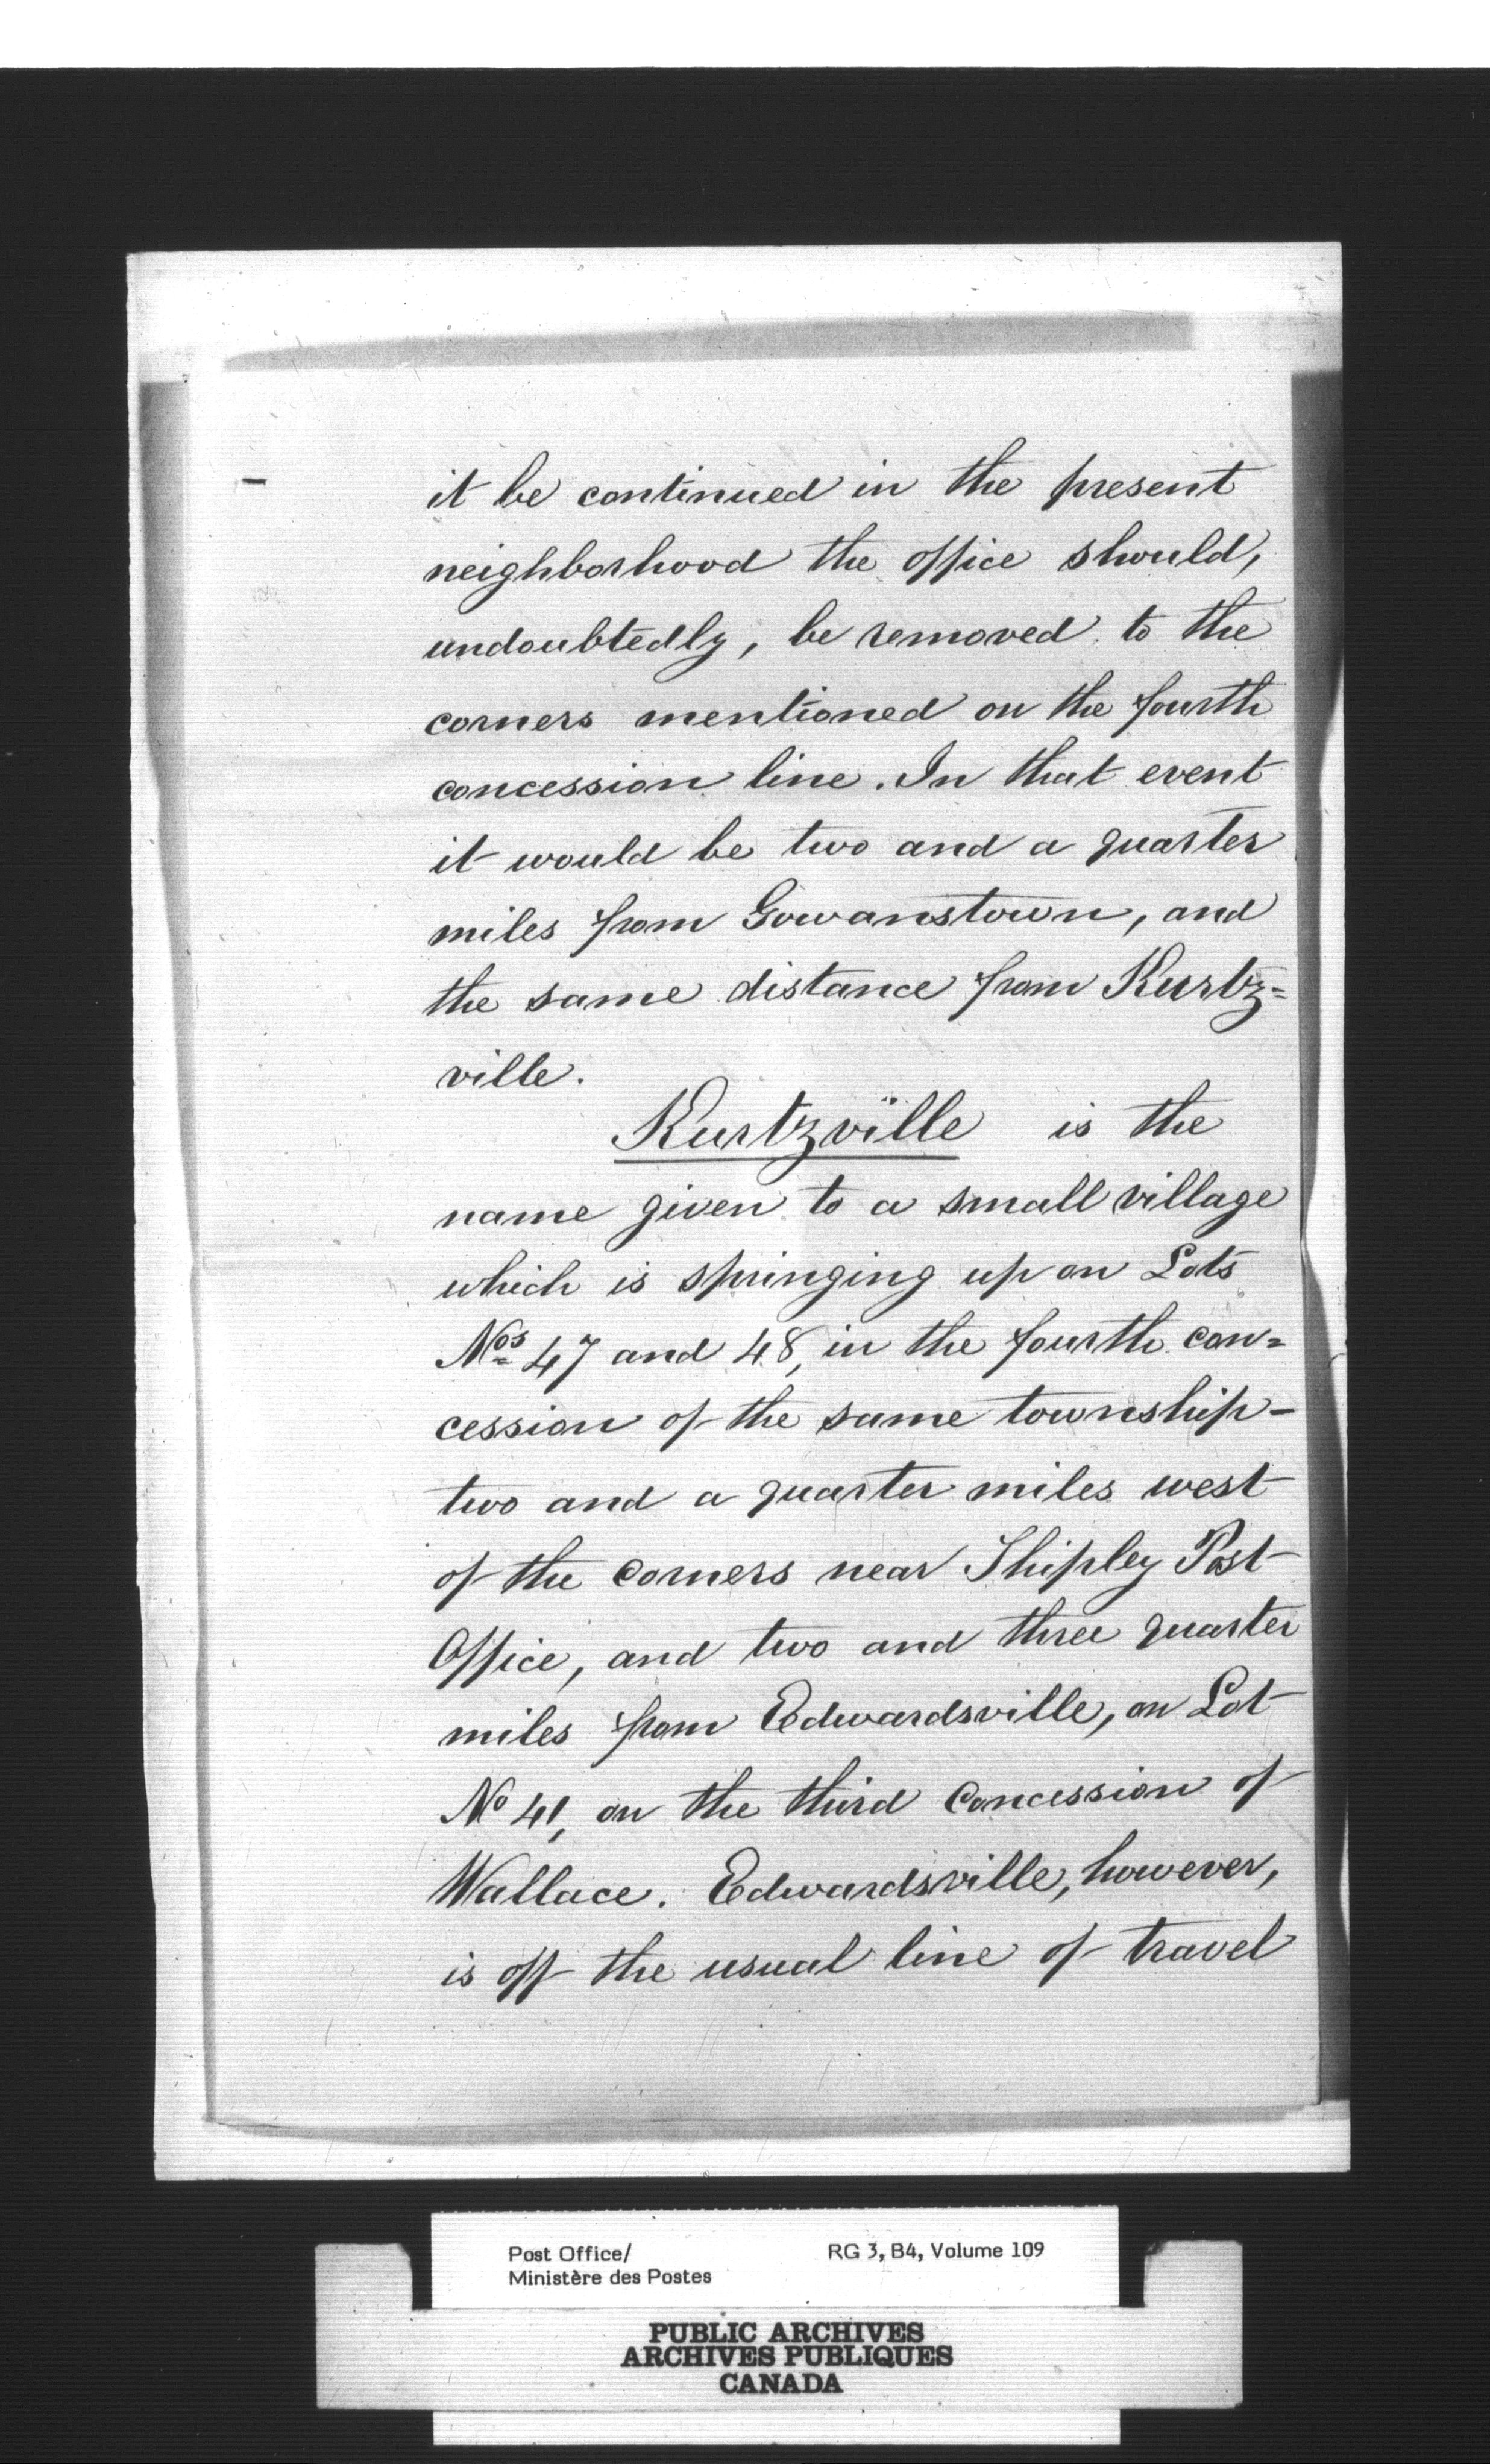 it be continued in the present
neighborhood the office should,
undoubtedly, be removed to the
corners mentioned on the fourth
concession line. In that event
it would be two and a quarter
miles from Gowanstown, and
the same distance from Kurtz=
ville.
Kurtzville is the
name given to a small village
which is springing up on Lots
Nos 47 and 48, in the fourth con=
cession of the same township -
two and a quarter miles west
of the corners near Shipley Post
Office, and two and three quarter
miles from Edwardsville, on Lot
No 41, on the third concession of
Wallace. Edwardsville, however,
is off the usual line of travel
Post Office/ RG 3, B4, Volume 109
Ministère des Postes
PUBLIC ARCHIVES
ARCHIVES PUBLIQUES
CANADA